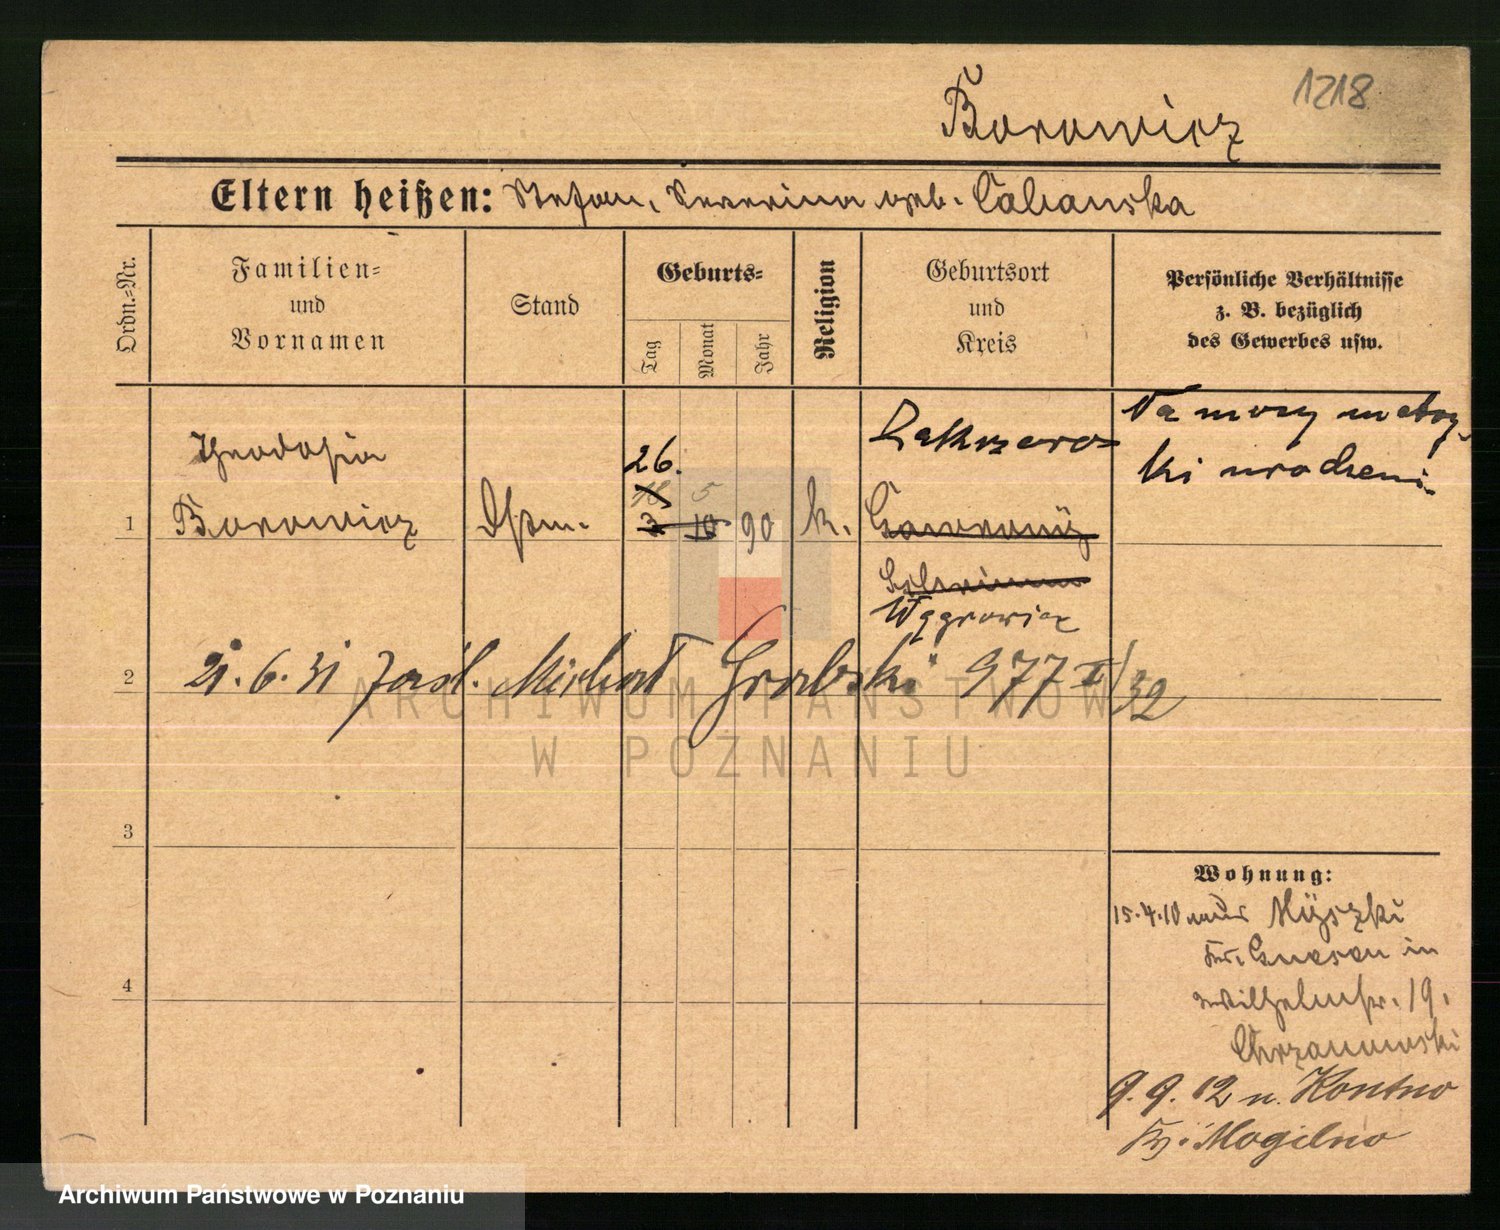 1218
Borowicz
Eltern heißen: Stefan, Severina geb. Cabanska
Ordn.=Nr.
Familien=
und
Vornamen
Stand
Geburts=
Tag
Monat
Jahr
Religion
Geburtsort
und
Kreis
Persönliche Verhältnisse
z. B. bezüglich
des Gewerbes usw.
Na mocy metry-
ki urodzeni.
Theodosia
26.
18 5
1 Borowicz 3 10 90 k.
Wągrowiec
2 21.6.31 zaśl. Michał Grabski 977 I/32
3
4
Wohnung:
15.4.10 aus Myszki
Kr. Gnesen in
Wilhelmstr. 19.
Chrzanowski
9.9.12 n. Kontno
Kr. Mogilno
ARCHIWUM PAŃSTWOWE
W POZNANIU
Archiwum Państwowe w Poznaniu